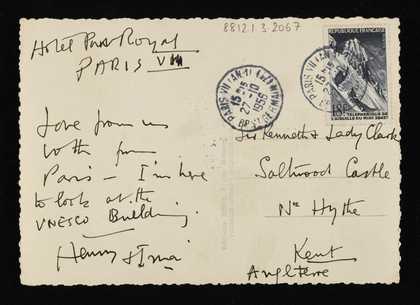 8812.1.3.2067
Hotel Pont Royal
PARIS VII
Love from us
both from
Paris – I'm here
to look at the
UNESCO Building
Henry & Irina
REPUBLIQUE FRANÇAISE
TÉLÉPHÉRIQUE DE
L'AIGUILLE DU MIDI
PARIS VII
15H
27-10
1956
BD ST GERMAIN
PARIS VII
15H
Sir Kenneth & Lady Clark
Saltwood Castle
Nr Hythe
Kent
Angleterre